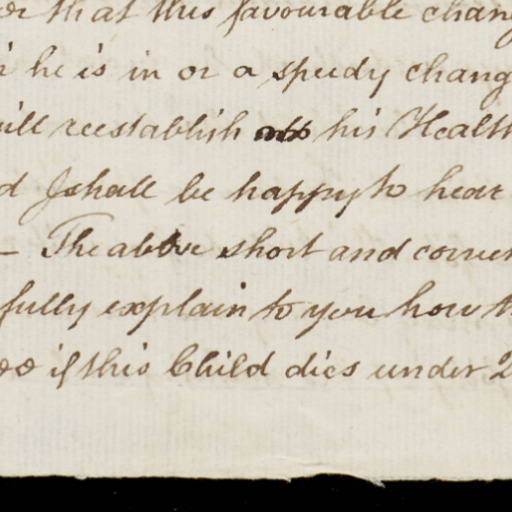 er that this favourable chang
r he is in or a speedy chang
will reestablish his Health
d I shall be happy to hear
– The above short and correc
fully explain to you how th
if this Child dies under 2